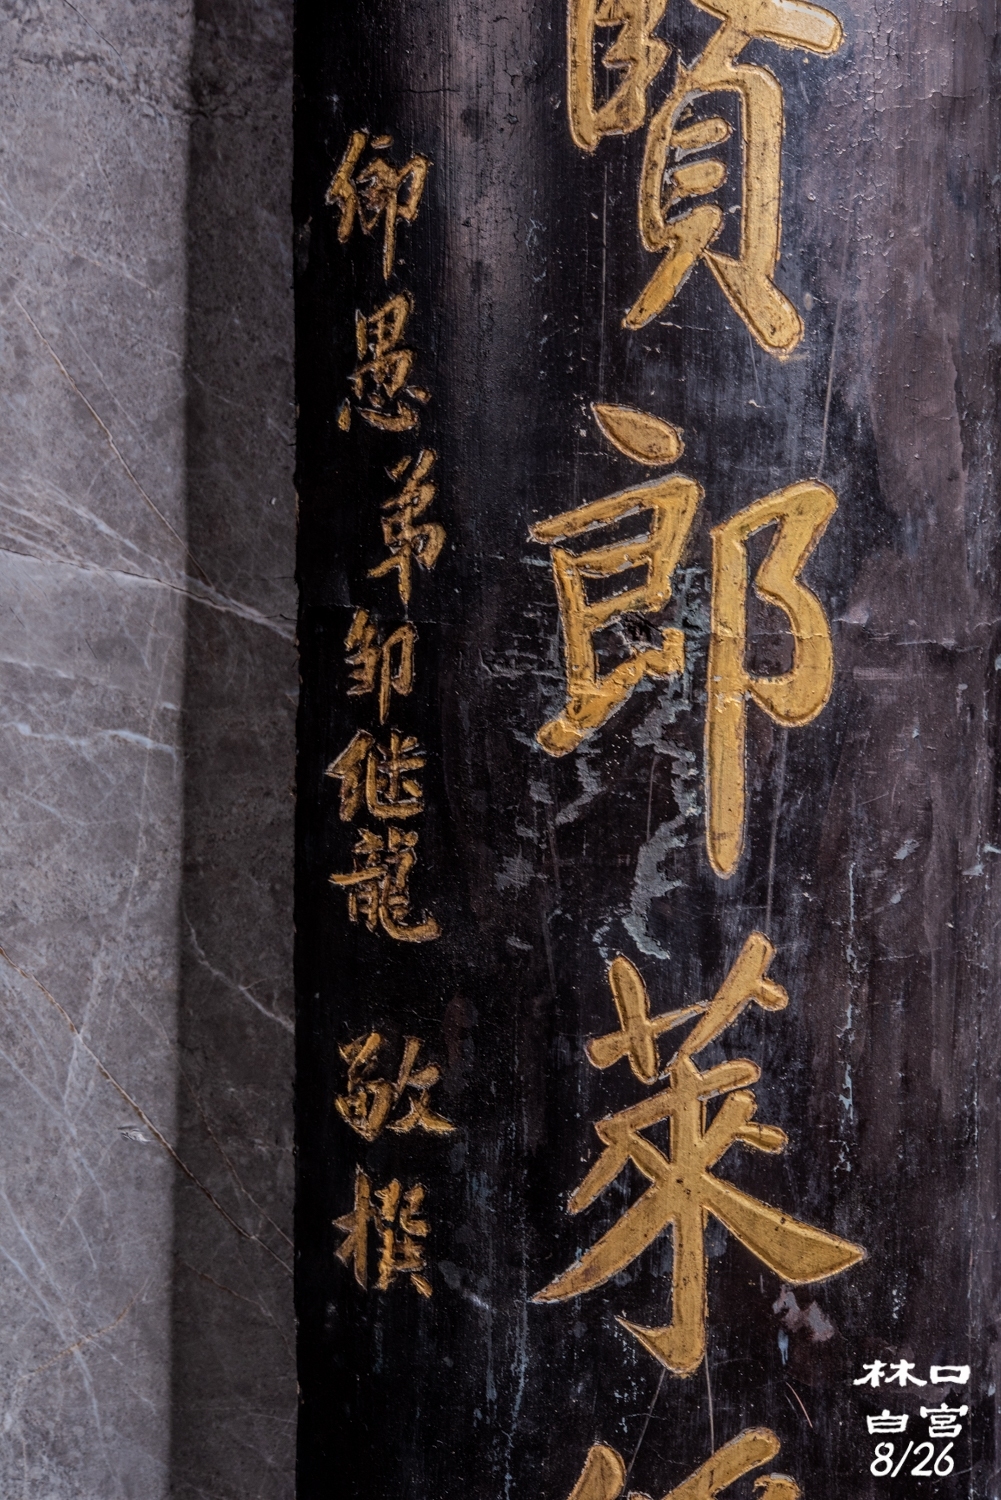 賢郎萊
鄉愚弟邹继龍 敬撰
林口
白宮
8/26